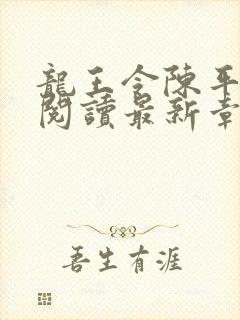 龍王令陳平
閱讀最新章
吾生有涯